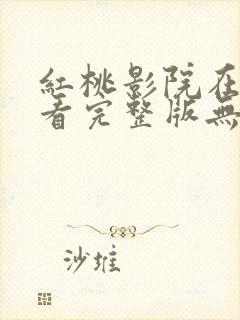 紅桃影院在
看完整版無
沙堆